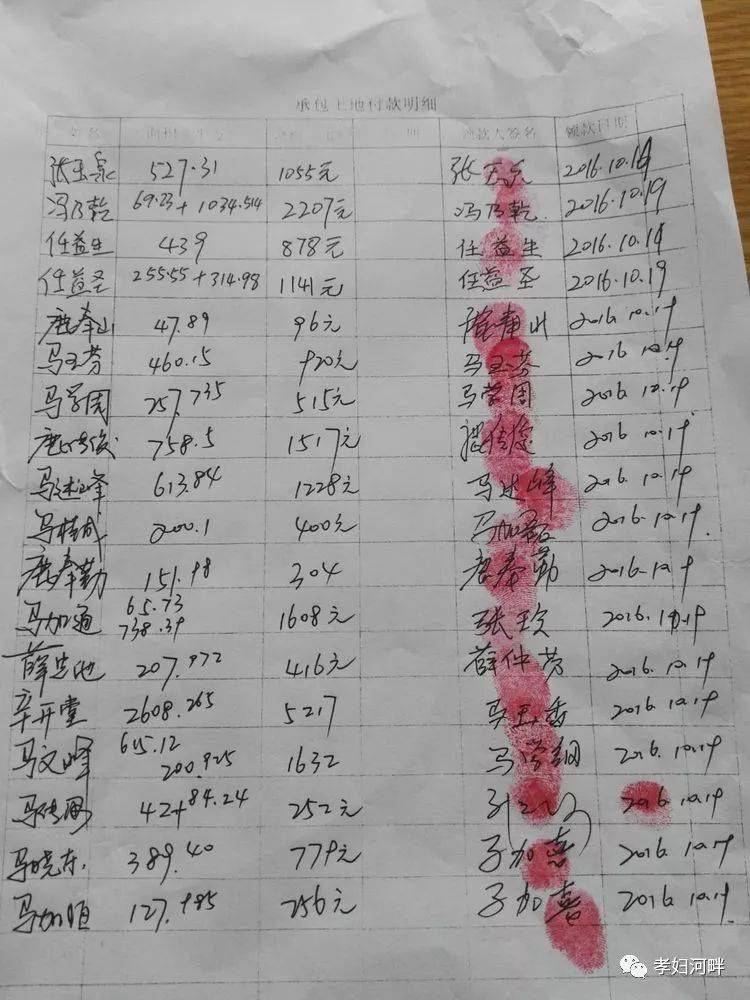 承包土地付款明细
姓名 面积 领款人签名 领款日期
张玉泉 527.31 1055元 张玉泉 2016.10.19
冯乃乾 69.23+1034.514 2207元 冯乃乾 2016.10.19
任益生 439 878元 任益生 2016.10.19
任益圣 255.55+314.98 1141元 任益圣 2016.10.19
鹿奉山 47.89 96元 2016.10.19
马玉芬 460.15 920元 马玉芬 2016.10.19
马学周 257.735 515元 马学周 2016.10.19
758.5 1517元 2016.10.19
马述峰 613.84 1228元 马述峰 2016.10.19
马桂成 200.1 400元 2016.10.19
鹿奉勤 151.98 304 鹿奉勤 2016.10.19
马加通 65.73 738.39 1608元 张玫 2016.10.19
薛忠地 207.972 416元 薛仲芳 2016.10.19
辛开堂 2608.265 5217 马玉香 2016.10.19
马文峰 615.12 200.925 1632 马学钢 2016.10.19
42+84.24 252元 2016.10.19
马晓东 389.40 779元 马加喜 2016.10.19
马加恒 127.985 256元 马加喜 2016.10.19
孝妇河畔